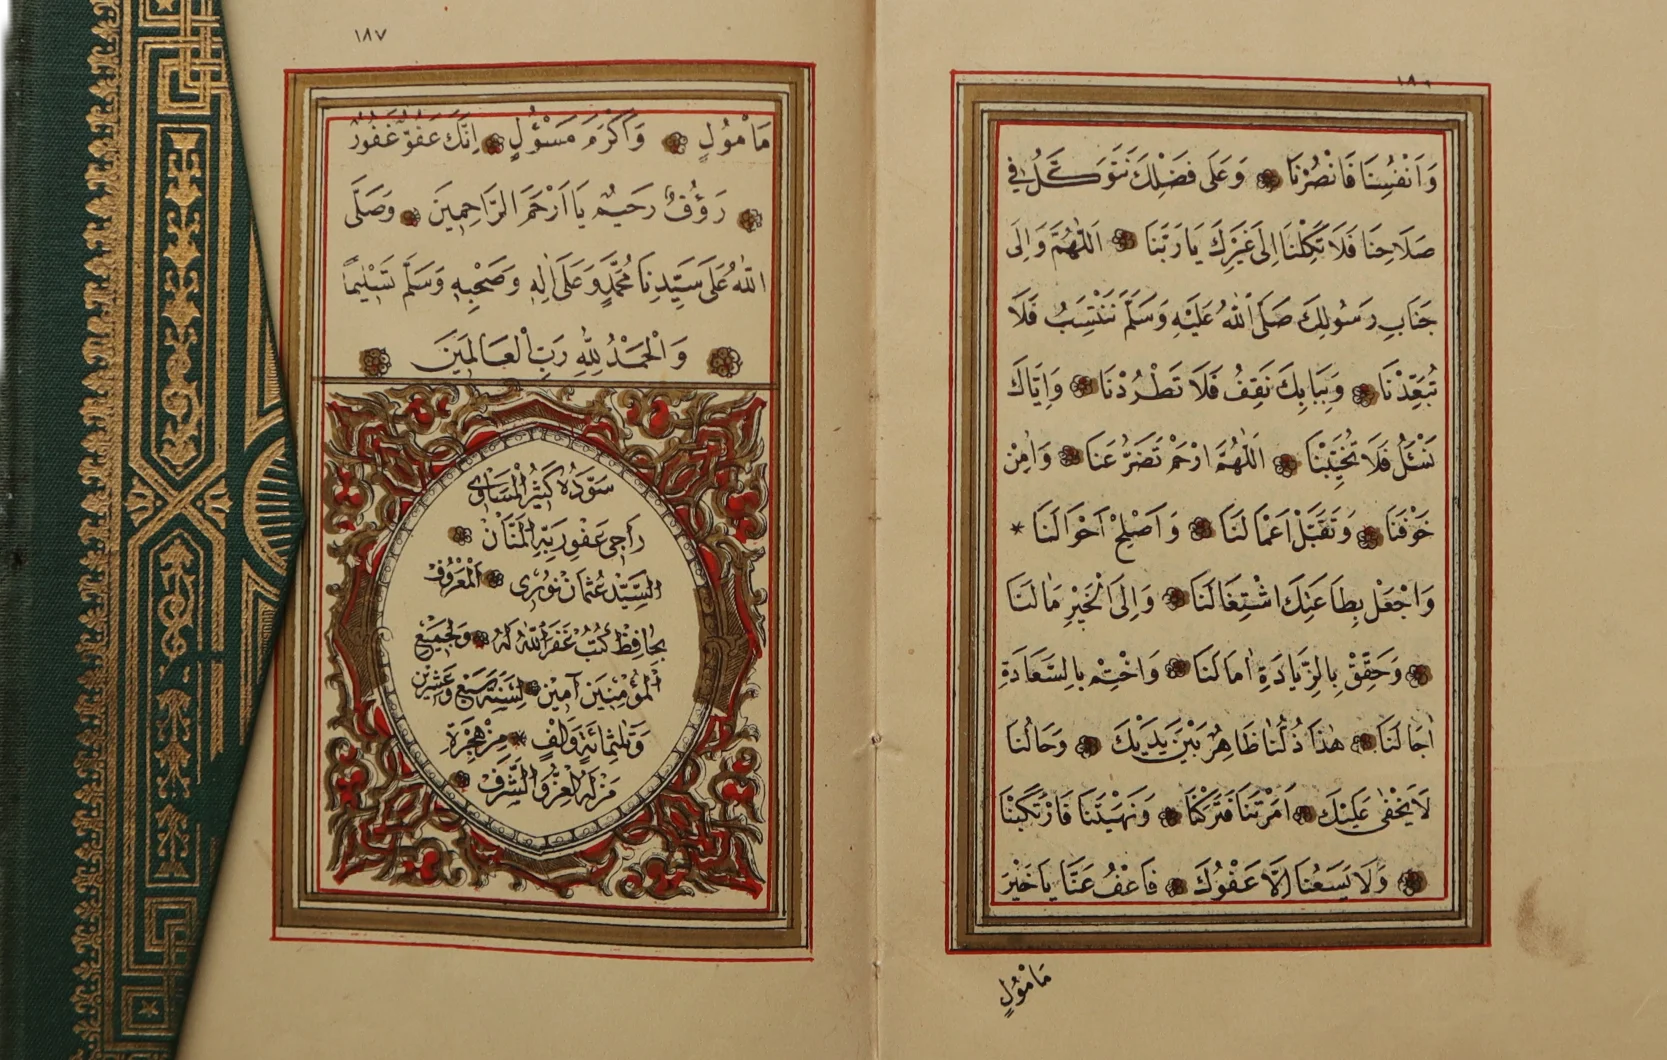 ١٨٦
وَاَنْفُسِنَا فَانْصُرْنَا وَعَلَى فَضْلِكَ نَتَوَكَّلُ فِي
صَلَاحِنَا فَلَا تَكِلْنَا اِلَى غَيْرِكَ يَا رَبَّنَا اَللّٰهُمَّ وَاِلَى
جَنَابِ رَسُولِكَ صَلَّى اللّٰهُ عَلَيْهِ وَسَلَّمَ نَنْتَسِبُ فَلَا
تُبَعِّدْنَا وَبِبَابِكَ نَقِفُ فَلَا تَطْرُدْنَا وَاِيَّاكَ
نَسْئَلُ فَلَا تُخَيِّبْنَا اَللّٰهُمَّ ارْحَمْ تَضَرُّعَنَا وَاٰمِنْ
خَوْفَنَا وَتَقَبَّلْ اَعْمَالَنَا وَاَصْلِحْ اَحْوَالَنَا *
وَاجْعَلْ بِطَاعَتِكَ اشْتِغَالَنَا وَاِلَى الْخَيْرِ مَاٰلَنَا
وَحَقِّقْ بِالزِّيَادَةِ اٰمَالَنَا وَاخْتِمْ بِالسَّعَادَةِ
اٰجَالَنَا هٰذَا ذُلُّنَا ظَاهِرٌ بَيْنَ يَدَيْكَ وَحَالُنَا
لَا يَخْفٰى عَلَيْكَ اَمَرْتَنَا فَتَرَكْنَا وَنَهَيْتَنَا فَارْتَكَبْنَا
وَلَا يَسَعُنَا اِلَّا عَفْوُكَ فَاعْفُ عَنَّا يَا خَيْرَ
مَاْمُولٍ
١٨٧
مَاْمُولٍ وَاَكْرَمَ مَسْؤُلٍ اِنَّكَ عَفُوٌّ غَفُورٌ
رَؤُفٌ رَحِيمٌ يَا اَرْحَمَ الرَّاحِمِينَ وَصَلَّى
اللّٰهُ عَلَى سَيِّدِنَا مُحَمَّدٍ وَعَلَى اٰلِهِ وَصَحْبِهِ وَسَلَّمَ تَسْلِيمًا
وَالْحَمْدُ لِلّٰهِ رَبِّ الْعَالَمِينَ
سَوَّدَهُ كَثِيرُ الْمَسَاوِى
رَاجِى عَفْوِ رَبِّهِ الْمَنَّانْ
السَّيِّدْ عُثْمَانْ نُورِى الْمَعْرُوفْ
بِحَافِظْ كُتُبْ غَفَرَ اللّٰهُ لَهُ وَلِجَمِيعِ
الْمُؤْمِنِينَ آمِينْ لِسَنَةِ سَبْعٍ وَعِشْرِينَ
وَثَلٰثِمِائَةٍ وَاَلْفٍ * مِنْ هِجْرَةِ
مَنْ لَهُ الْعِزُّ وَالشَّرَفْ